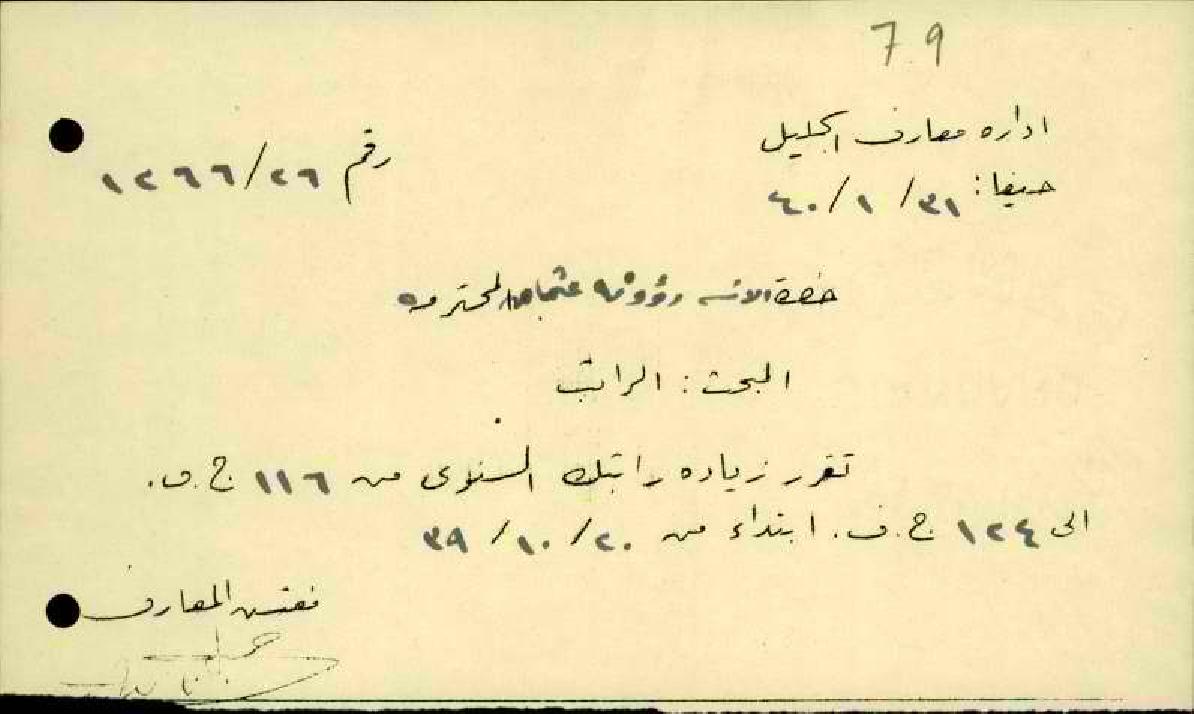 79
اداره معارف الجليل
رقم ١٢٦٦/٢٦
حيفا: ٣١/١/٤٠
حضرة الآنسه رؤوفه عثمان المحترمه
البحث: الراتب
تقرر زياده راتبك السنوى من ١١٦ ج.ف.
الى ١٢٤ ج.ف. ابتداء من ٢٠/١٠/٣٩
مفتش المعارف